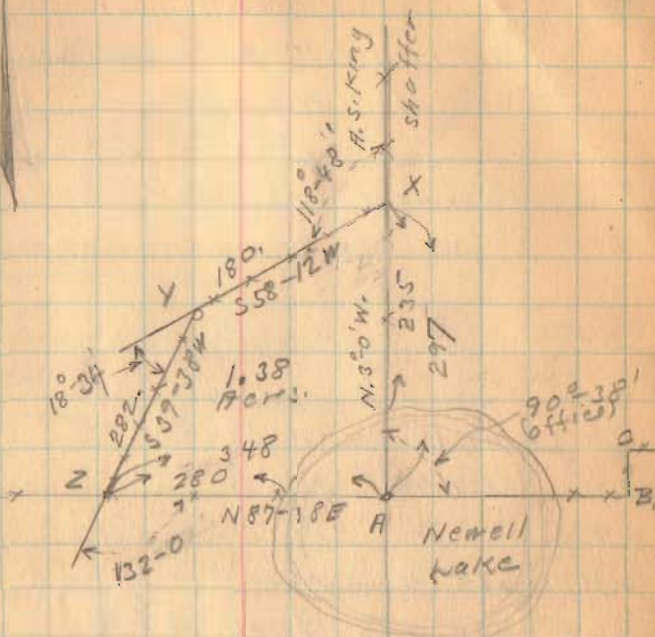 A.S. King
Shaffer
X
118°-48'
180.
S58-12W
Y
18°-34'
282.
S39-38W
1.38
Acres.
N.3°-0'W.
235
297
90°-38'
(office)
348
280
Z
N87-38E
A
B
132-0
Newell
Lake